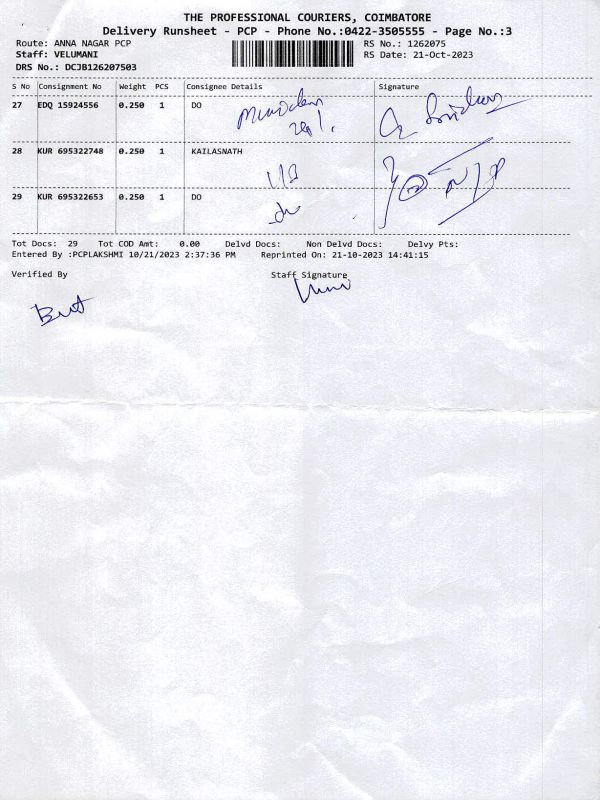 THE PROFESSIONAL COURIERS, COIMBATORE
Delivery Runsheet - PCP - Phone No.:0422-3505555 - Page No.:3
Route: ANNA NAGAR PCP RS No.: 1262075
Staff: VELUMANI RS Date: 21-Oct-2023
DRS No.: DCJB126207503
S No Consignment No Weight PCS Consignee Details Signature
27 EDQ 15924556 0.250 1 DO
28 KUR 695322748 0.250 1 KAILASNATH
29 KUR 695322653 0.250 1 DO
Tot Docs: 29 Tot COD Amt: 0.00 Delvd Docs: Non Delvd Docs: Delvy Pts:
Entered By :PCPLAKSHMI 10/21/2023 2:37:36 PM Reprinted On: 21-10-2023 14:41:15
Verified By Staff Signature